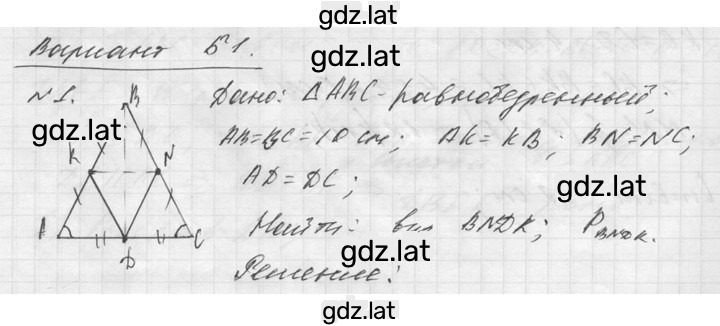 gdz.lat
Вариант Б1.
№1.
Дано: △ABC - равнобедренный;
gdz.lat
AB=BC=10 см; AK=KB; BN=NC;
AD=DC;
gdz.lat
Найти: вид BNDK; P_BNDK.
gdz.lat
Решение:
B
K N
A D C
gdz.lat